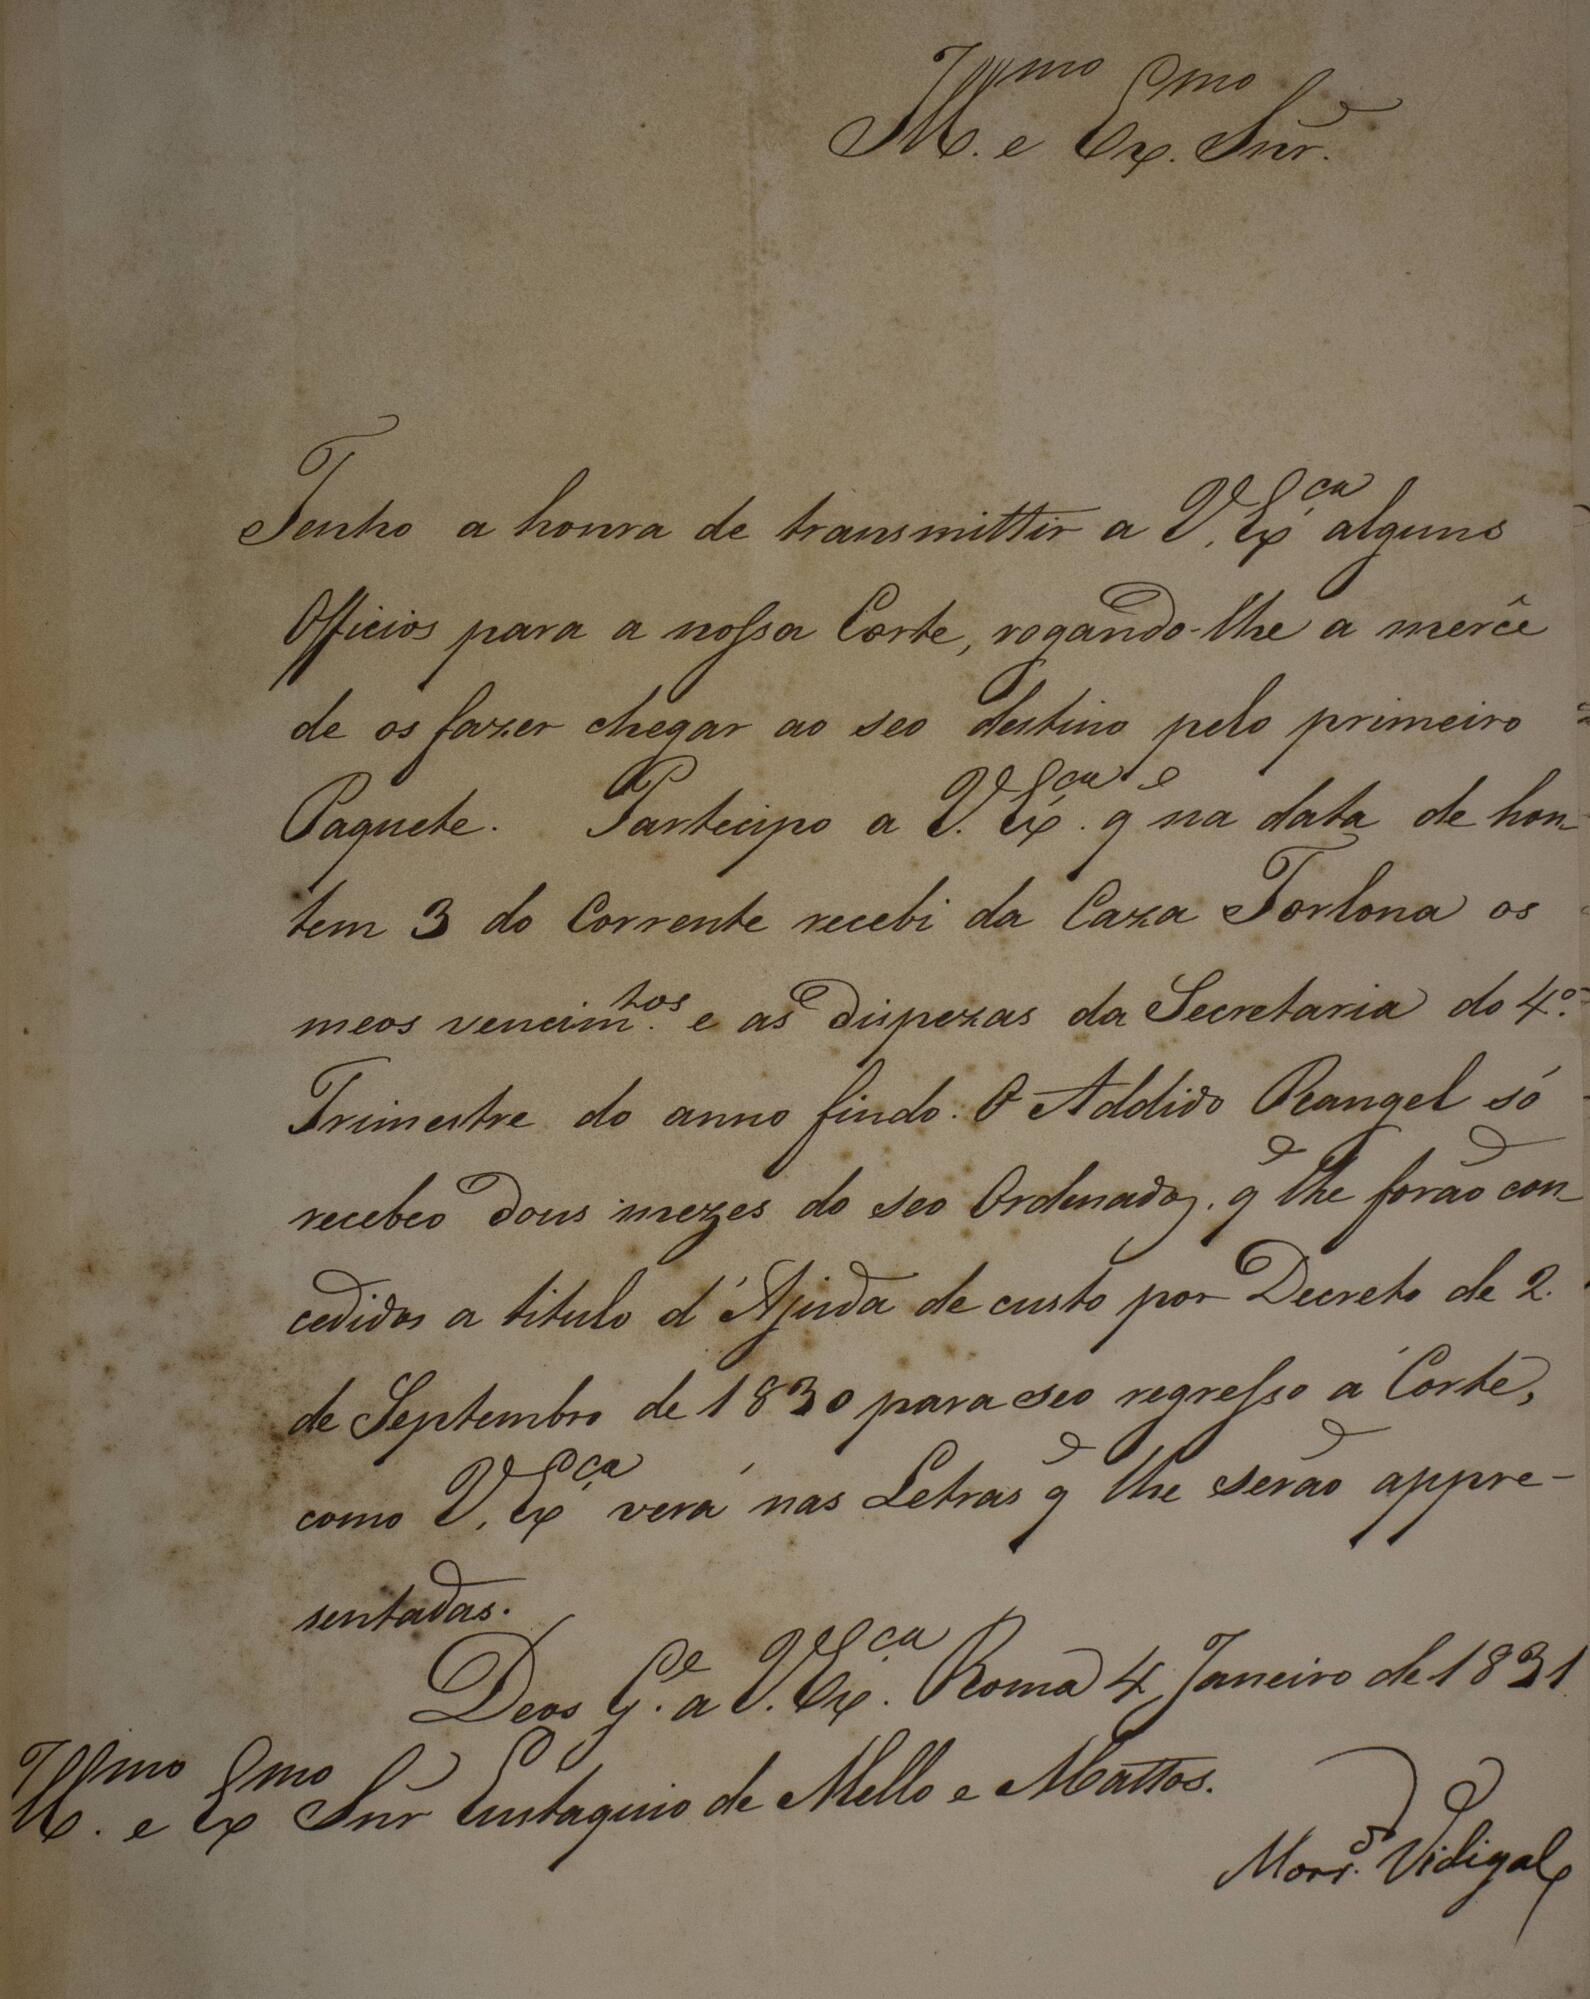 Ill.mo e Ex.mo Snr.
Tenho a honra de transmittir a V. Ex.ca alguns
Officios para a nossa Corte, rogando-lhe a mercê
de os fazer chegar ao seo destino pelo primeiro
Paquete. Participo a V. Ex.ca q̃ na data de hon-
tem 3 do Corrente recebi da Caza Torlona os
meos vencim.tos e as dispezas da Secretaria do 4.º
Trimestre do anno findo. O Addido Rangel só
recebeo dous mezes do seo Ordenado, q̃ lhe forão con-
cedidos a titulo d'Ajuda de custo por Decreto de 2.
de Septembro de 1830 para seo regresso á Corte,
como V. Ex.ca verá nas Letras q̃ lhe serão appre-
sentadas.
Deos G.e a V. Ex.ca Roma 4 Janeiro de 1831
Ill.mo e Ex.mo Snr Eustaquio de Mello e Mattos.
Vidigal